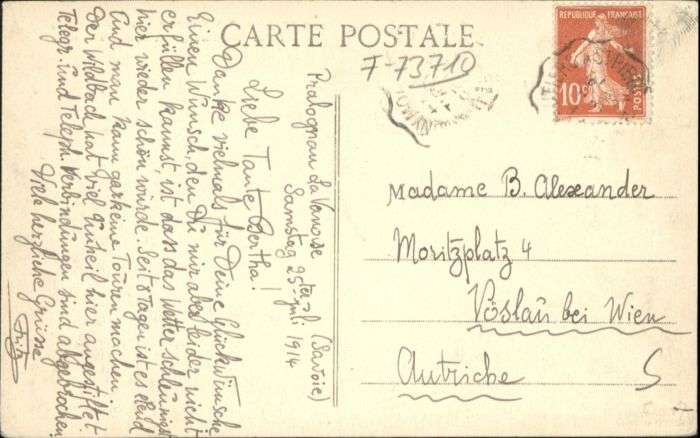 CARTE POSTALE
F-73710
RÉPUBLIQUE FRANÇAISE
10c
POSTES
Pralognan La Vanoise (Savoie)
Samstag 25ter Juli 1914
Liebe Tante Bertha!
Danke vielmals für Deine Glückwünsche
Einen Wunsch, den Du mir aber leider nicht
erfüllen kannst, ist dass das Wetter schleunigst
hier wieder schön würde. Seit 8 Tagen ist es elend
Und man kann gar keine Touren machen.
Der Wildbach hat viel Unheil hier angestiftet
Telegr. und Teleph. Verbindungen sind abgebrochen
Viele herzliche Grüsse
Fritz
Madame B. Alexander
Moritzplatz 4
Vöslau bei Wien
Autriche